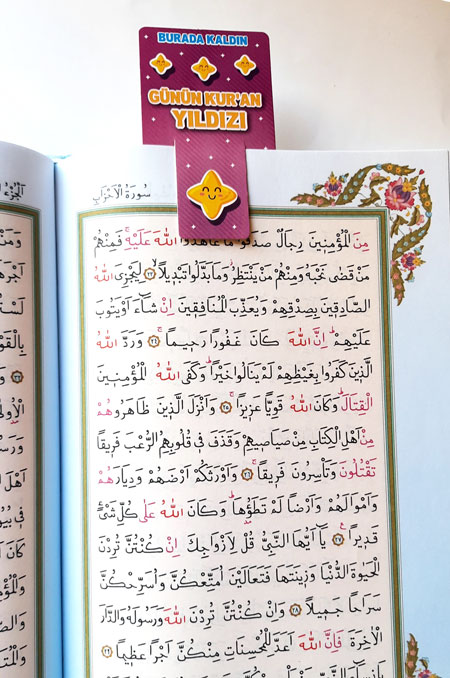 BURADA KALDIN
GÜNÜN KUR'AN
YILDIZI
سُورَةُ الْاَحْزَابِ
مِنَ الْمُؤْمِنٖينَ رِجَالٌ صَدَقُوا مَا عَاهَدُوا اللّٰهَ عَلَيْهِۚ فَمِنْهُمْ
مَنْ قَضٰى نَحْبَهُ وَمِنْهُمْ مَنْ يَنْتَظِرُۘ وَمَا بَدَّلُوا تَبْدٖيلاًۙ ﴿٢٣﴾ لِيَجْزِىَ اللّٰهُ
الصَّادِقٖينَ بِصِدْقِهِمْ وَيُعَذِّبَ الْمُنَافِقٖينَ اِنْ شَٓاءَ اَوْ يَتُوبَ
عَلَيْهِمْۜ اِنَّ اللّٰهَ كَانَ غَفُورًا رَحٖيمًاۚ ﴿٢٤﴾ وَرَدَّ اللّٰهُ
الَّذٖينَ كَفَرُوا بِغَيْظِهِمْ لَمْ يَنَالُوا خَيْرًاۜ وَكَفَى اللّٰهُ الْمُؤْمِنٖينَ
الْقِتَالَۜ وَكَانَ اللّٰهُ قَوِيًّا عَزٖيزًاۚ ﴿٢٥﴾ وَاَنْزَلَ الَّذٖينَ ظَاهَرُوهُمْ
مِنْ اَهْلِ الْكِتَابِ مِنْ صَيَاصٖيهِمْ وَقَذَفَ فٖى قُلُوبِهِمُ الرُّعْبَ فَرٖيقًا
تَقْتُلُونَ وَتَأْسِرُونَ فَرٖيقًاۚ ﴿٢٦﴾ وَاَوْرَثَكُمْ اَرْضَهُمْ وَدِيَارَهُمْ
وَاَمْوَالَهُمْ وَاَرْضًا لَمْ تَطَؤُ۫هَاۜ وَكَانَ اللّٰهُ عَلٰى كُلِّ شَىْءٍ
قَدٖيرًاۚ ﴿٢٧﴾ يَٓا اَيُّهَا النَّبِىُّ قُلْ لِاَزْوَاجِكَ اِنْ كُنْتُنَّ تُرِدْنَ
الْحَيٰوةَ الدُّنْيَا وَزٖينَتَهَا فَتَعَالَيْنَ اُمَتِّعْكُنَّ وَاُسَرِّحْكُنَّ
سَرَاحًا جَمٖيلًا ﴿٢٨﴾ وَاِنْ كُنْتُنَّ تُرِدْنَ اللّٰهَ وَرَسُولَهُ وَالدَّارَ
الْاٰخِرَةَ فَاِنَّ اللّٰهَ اَعَدَّ لِلْمُحْسِنَاتِ مِنْكُنَّ اَجْرًا عَظٖيمًا ﴿٢٩﴾